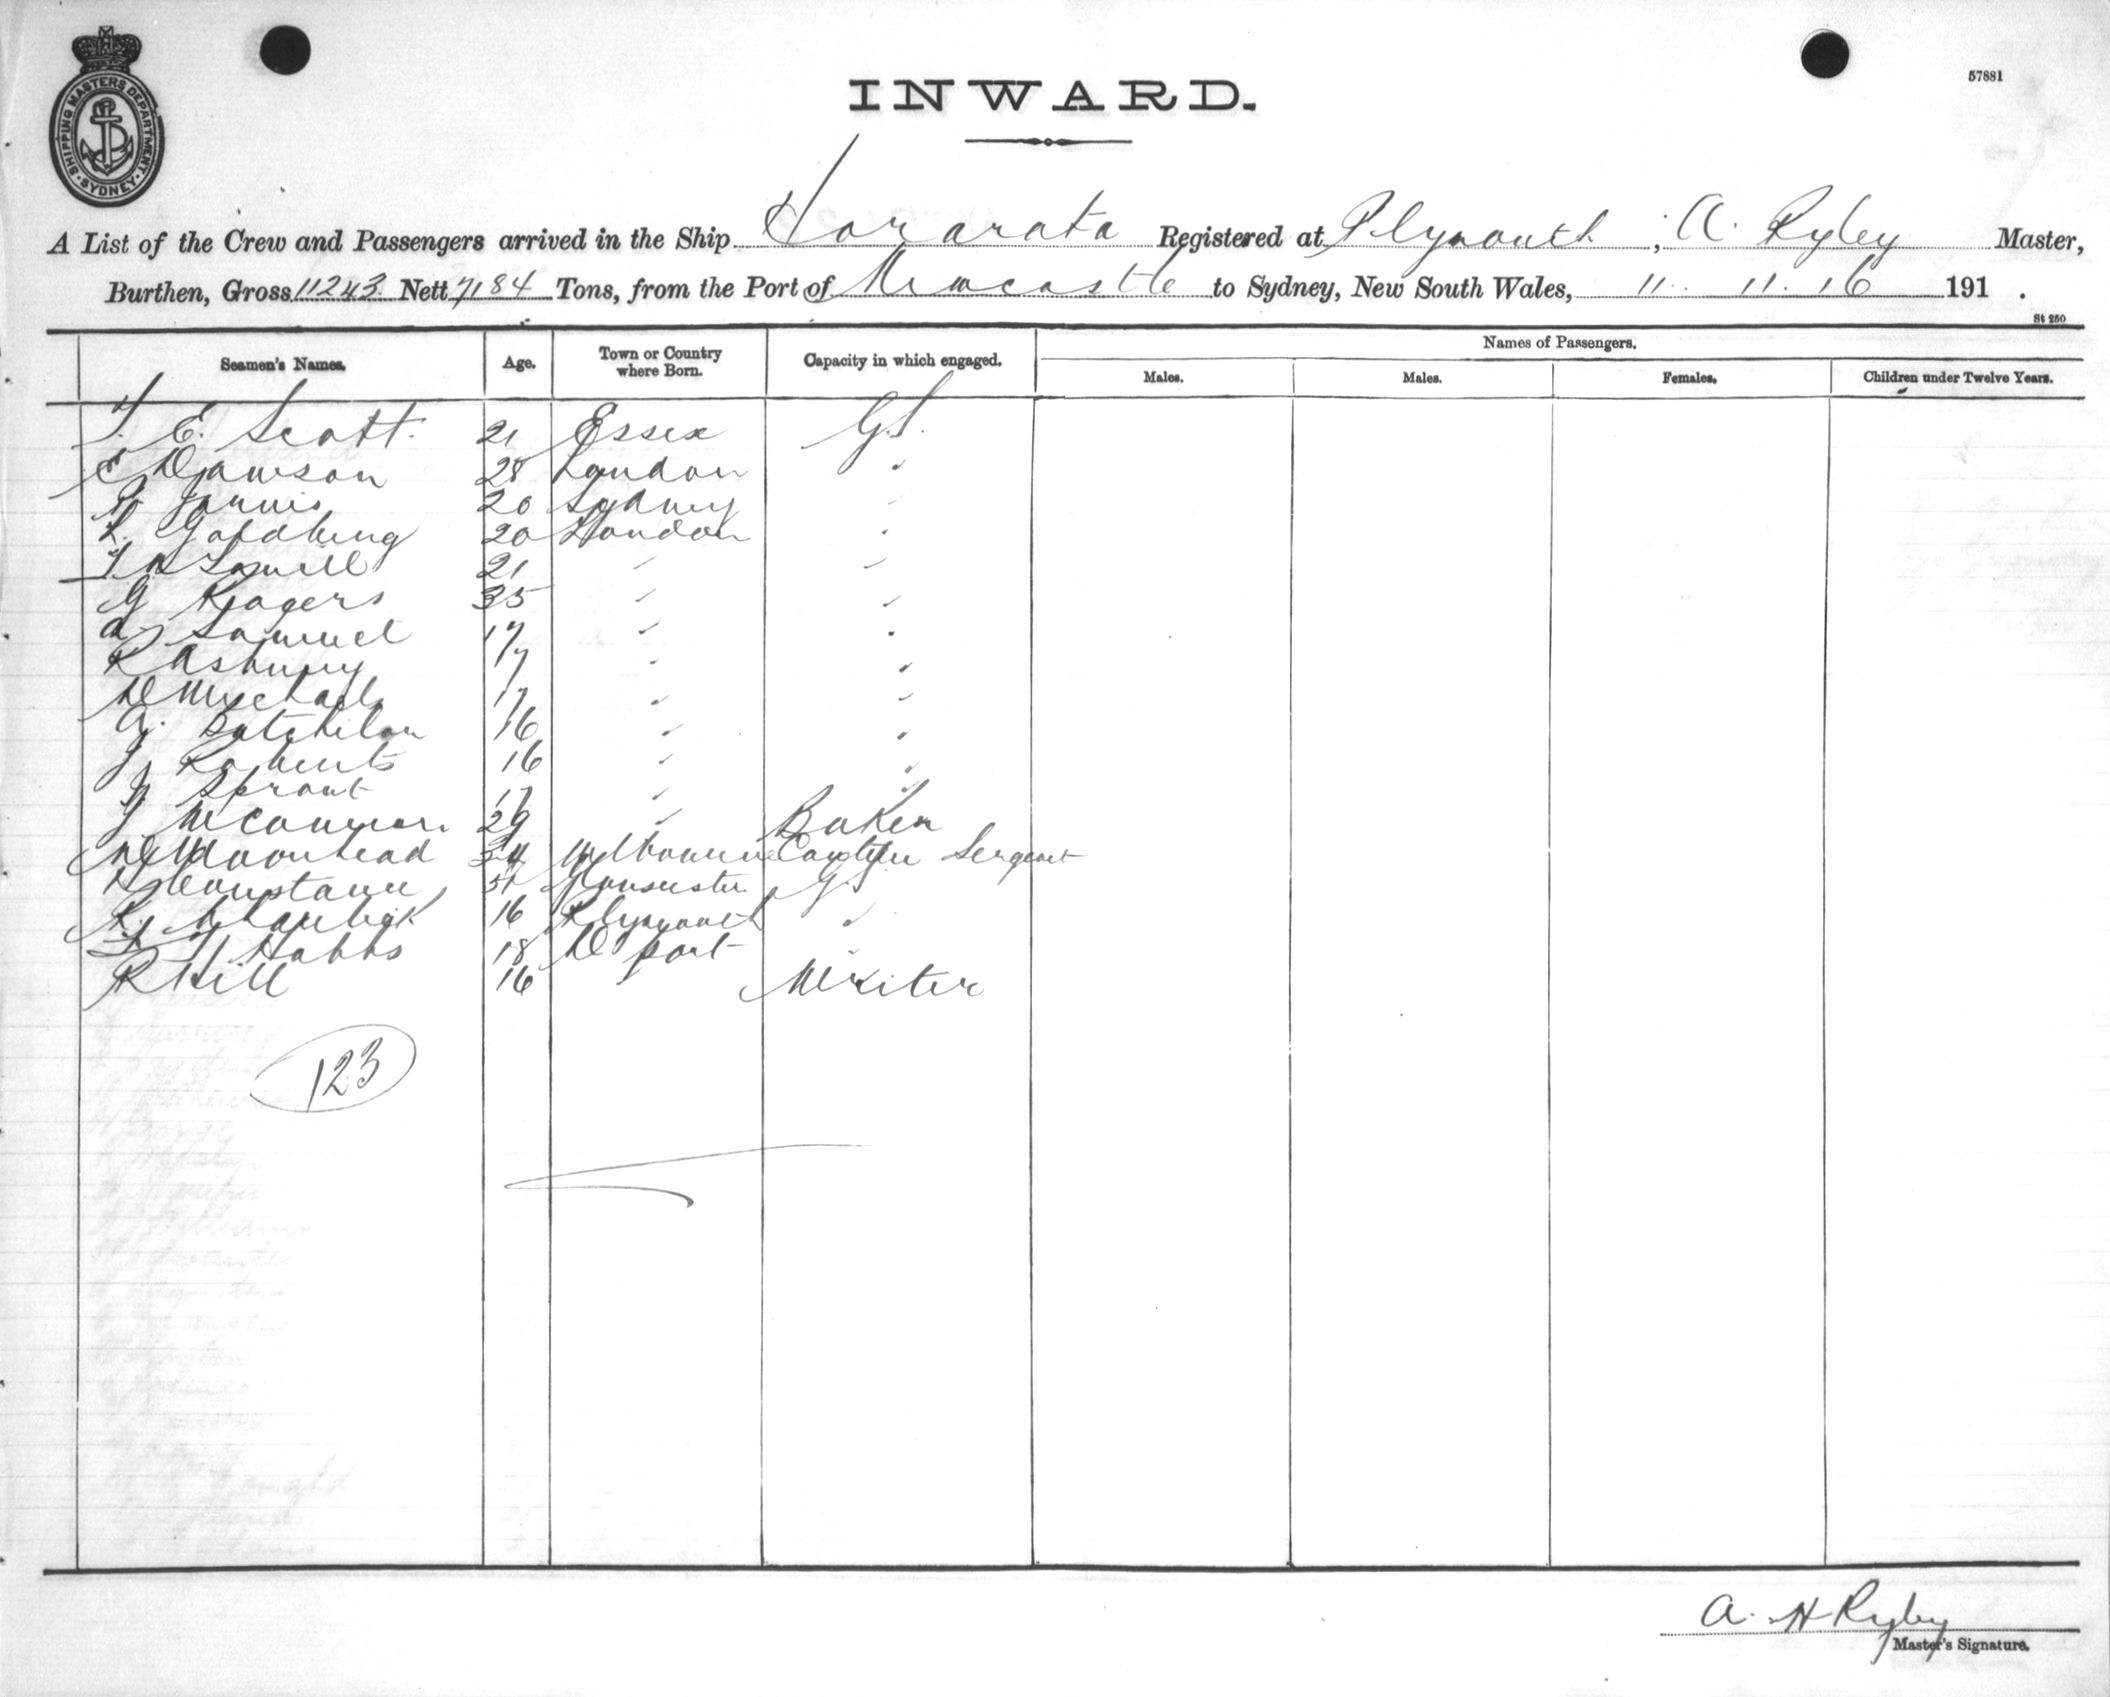 SHIPPING MASTERS DEPARTMENT · SYDNEY ·
57881
INWARD.
A List of the Crew and Passengers arrived in the Ship Hororata Registered at Plymouth, A. Ryley Master,
Burthen, Gross 11243 Nett 7184 Tons, from the Port of Newcastle to Sydney, New South Wales, 11. 11. 16 191 .
St 250
Seamen's Names. Age. Town or Country where Born. Capacity in which engaged. Names of Passengers.
Males. Males. Females. Children under Twelve Years.
E. Scott. 21 Essex G.S.
E Dawson 28 London "
Jarvis 20 Sydney "
L. Goldberg 20 London "
21 " "
G Rogers 35 " "
A. Samuel 17 " "
R Asbury 17 " "
D Mychael 17 " "
A. Batchilor 16 " "
J Roberts 16 " "
J Sprout 17 " "
J McCannon 29 " Baker
Moorhead 34 Melbourne Canteen Sergeant
Constance Gloucester G.S.
R. 16 Plymouth "
Hobbs 18 D port "
R Hill 16 Writer
123
A. H Ryley
Master's Signature.